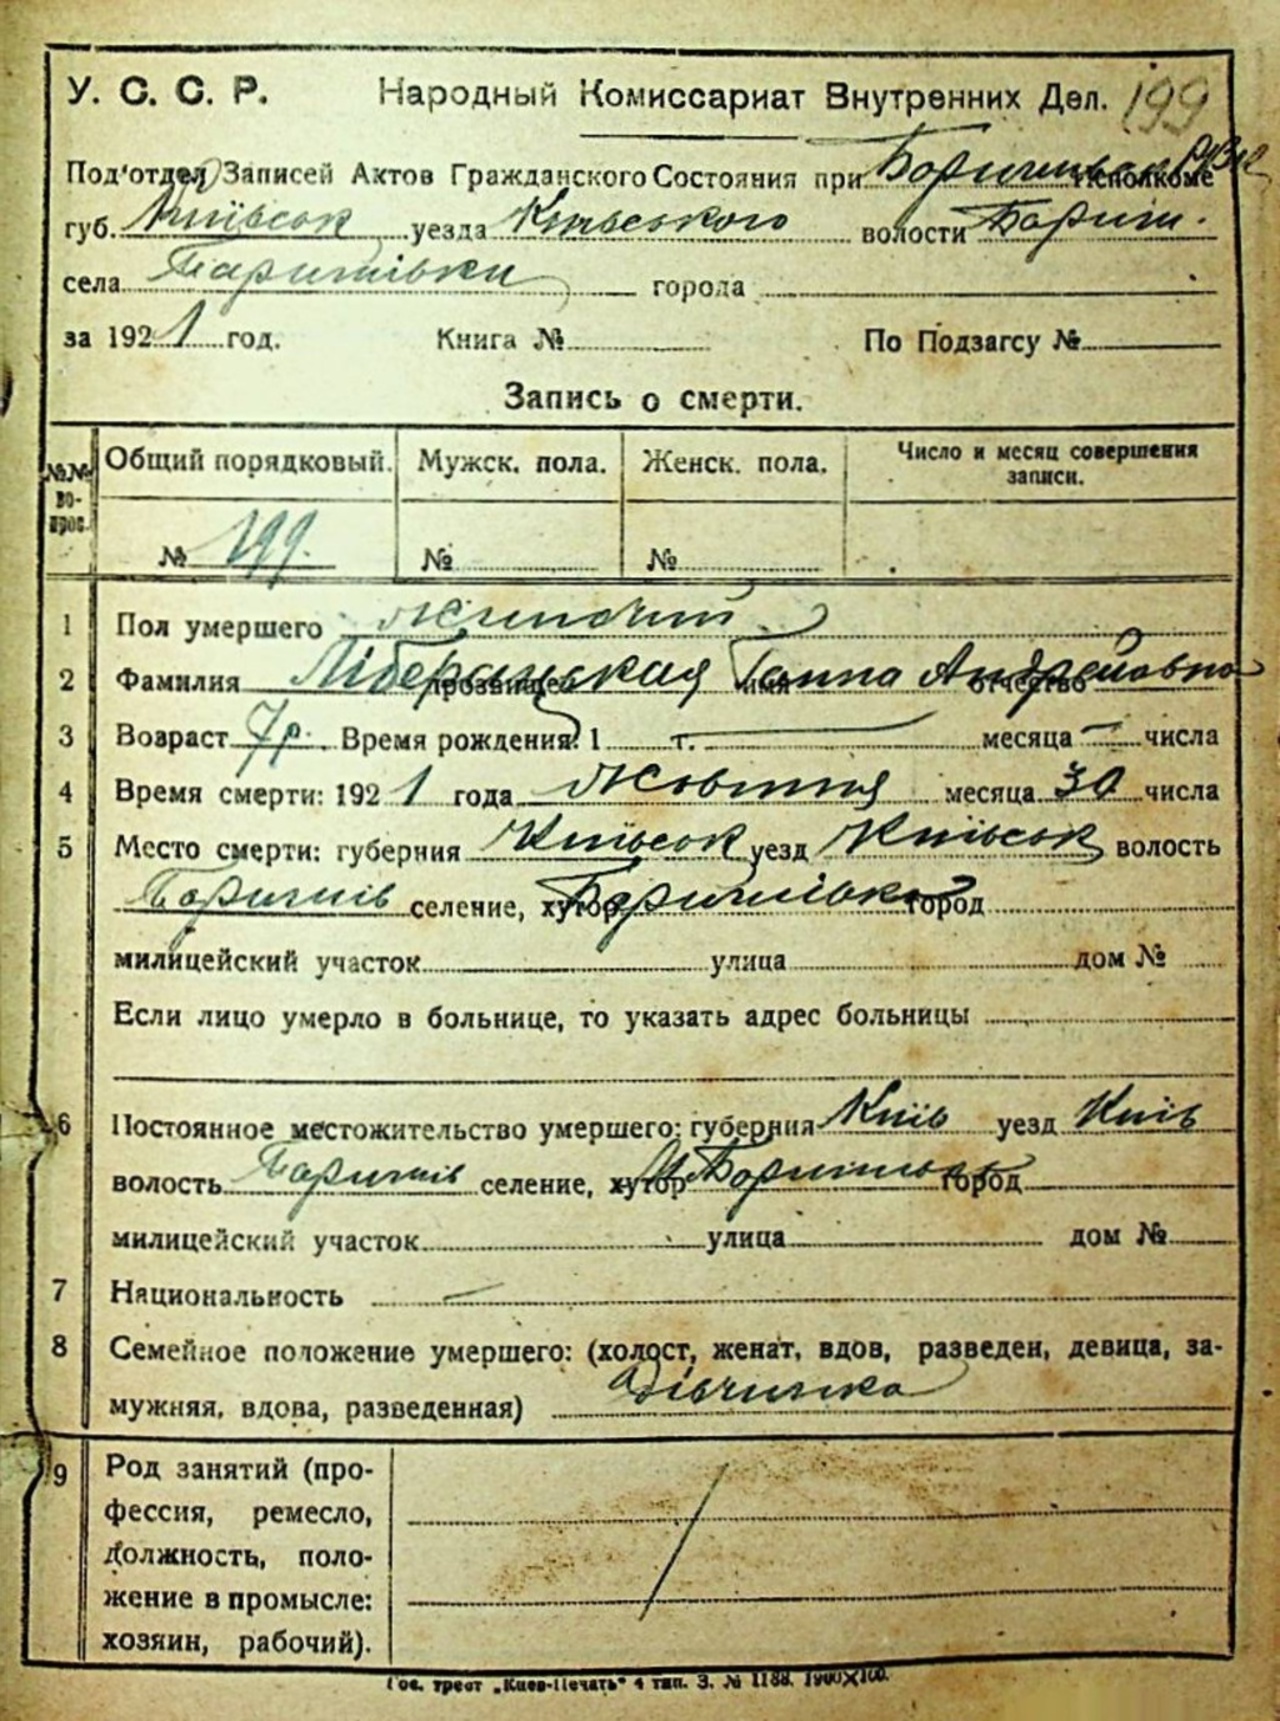 У. С. С. Р. Народный Комиссариат Внутренних Дел. 199
Под'отдел Записей Актов Гражданского Состояния при Исполкоме
губ. Київськ уезда Київського волости Бориш.
села Баришівки города
за 1921 год. Книга № По Подзагсу №
Запись о смерти.
№№ вопрос. Общий порядковый. Мужск. пола. Женск. пола. Число и месяц совершения записи.
№ 199. № №
1 Пол умершего жиночий
2 Фамилия прозвище имя Ганна отчество Андреовна
3 Возраст 7р. Время рождения: 1 г. — месяца — числа
4 Время смерти: 1921 года Жовтня месяца 30 числа
5 Место смерти: губерния Київськ уезд Київськ волость
Баришів селение, хутор Баришівка город
милицейский участок улица дом №
Если лицо умерло в больнице, то указать адрес больницы
6 Постоянное местожительство умершего: губерния Київ уезд Київ
волость Баришів селение, хутор город
милицейский участок улица дом №
7 Национальность —
8 Семейное положение умершего: (холост, женат, вдов, разведен, девица, за-
мужняя, вдова, разведенная) Дівчинка
9 Род занятий (про-
фессия, ремесло,
должность, поло-
жение в промысле:
хозяин, рабочий).
Гос. трест „Киев-Печать" 4 тип. З. № 1188. 1900X100.